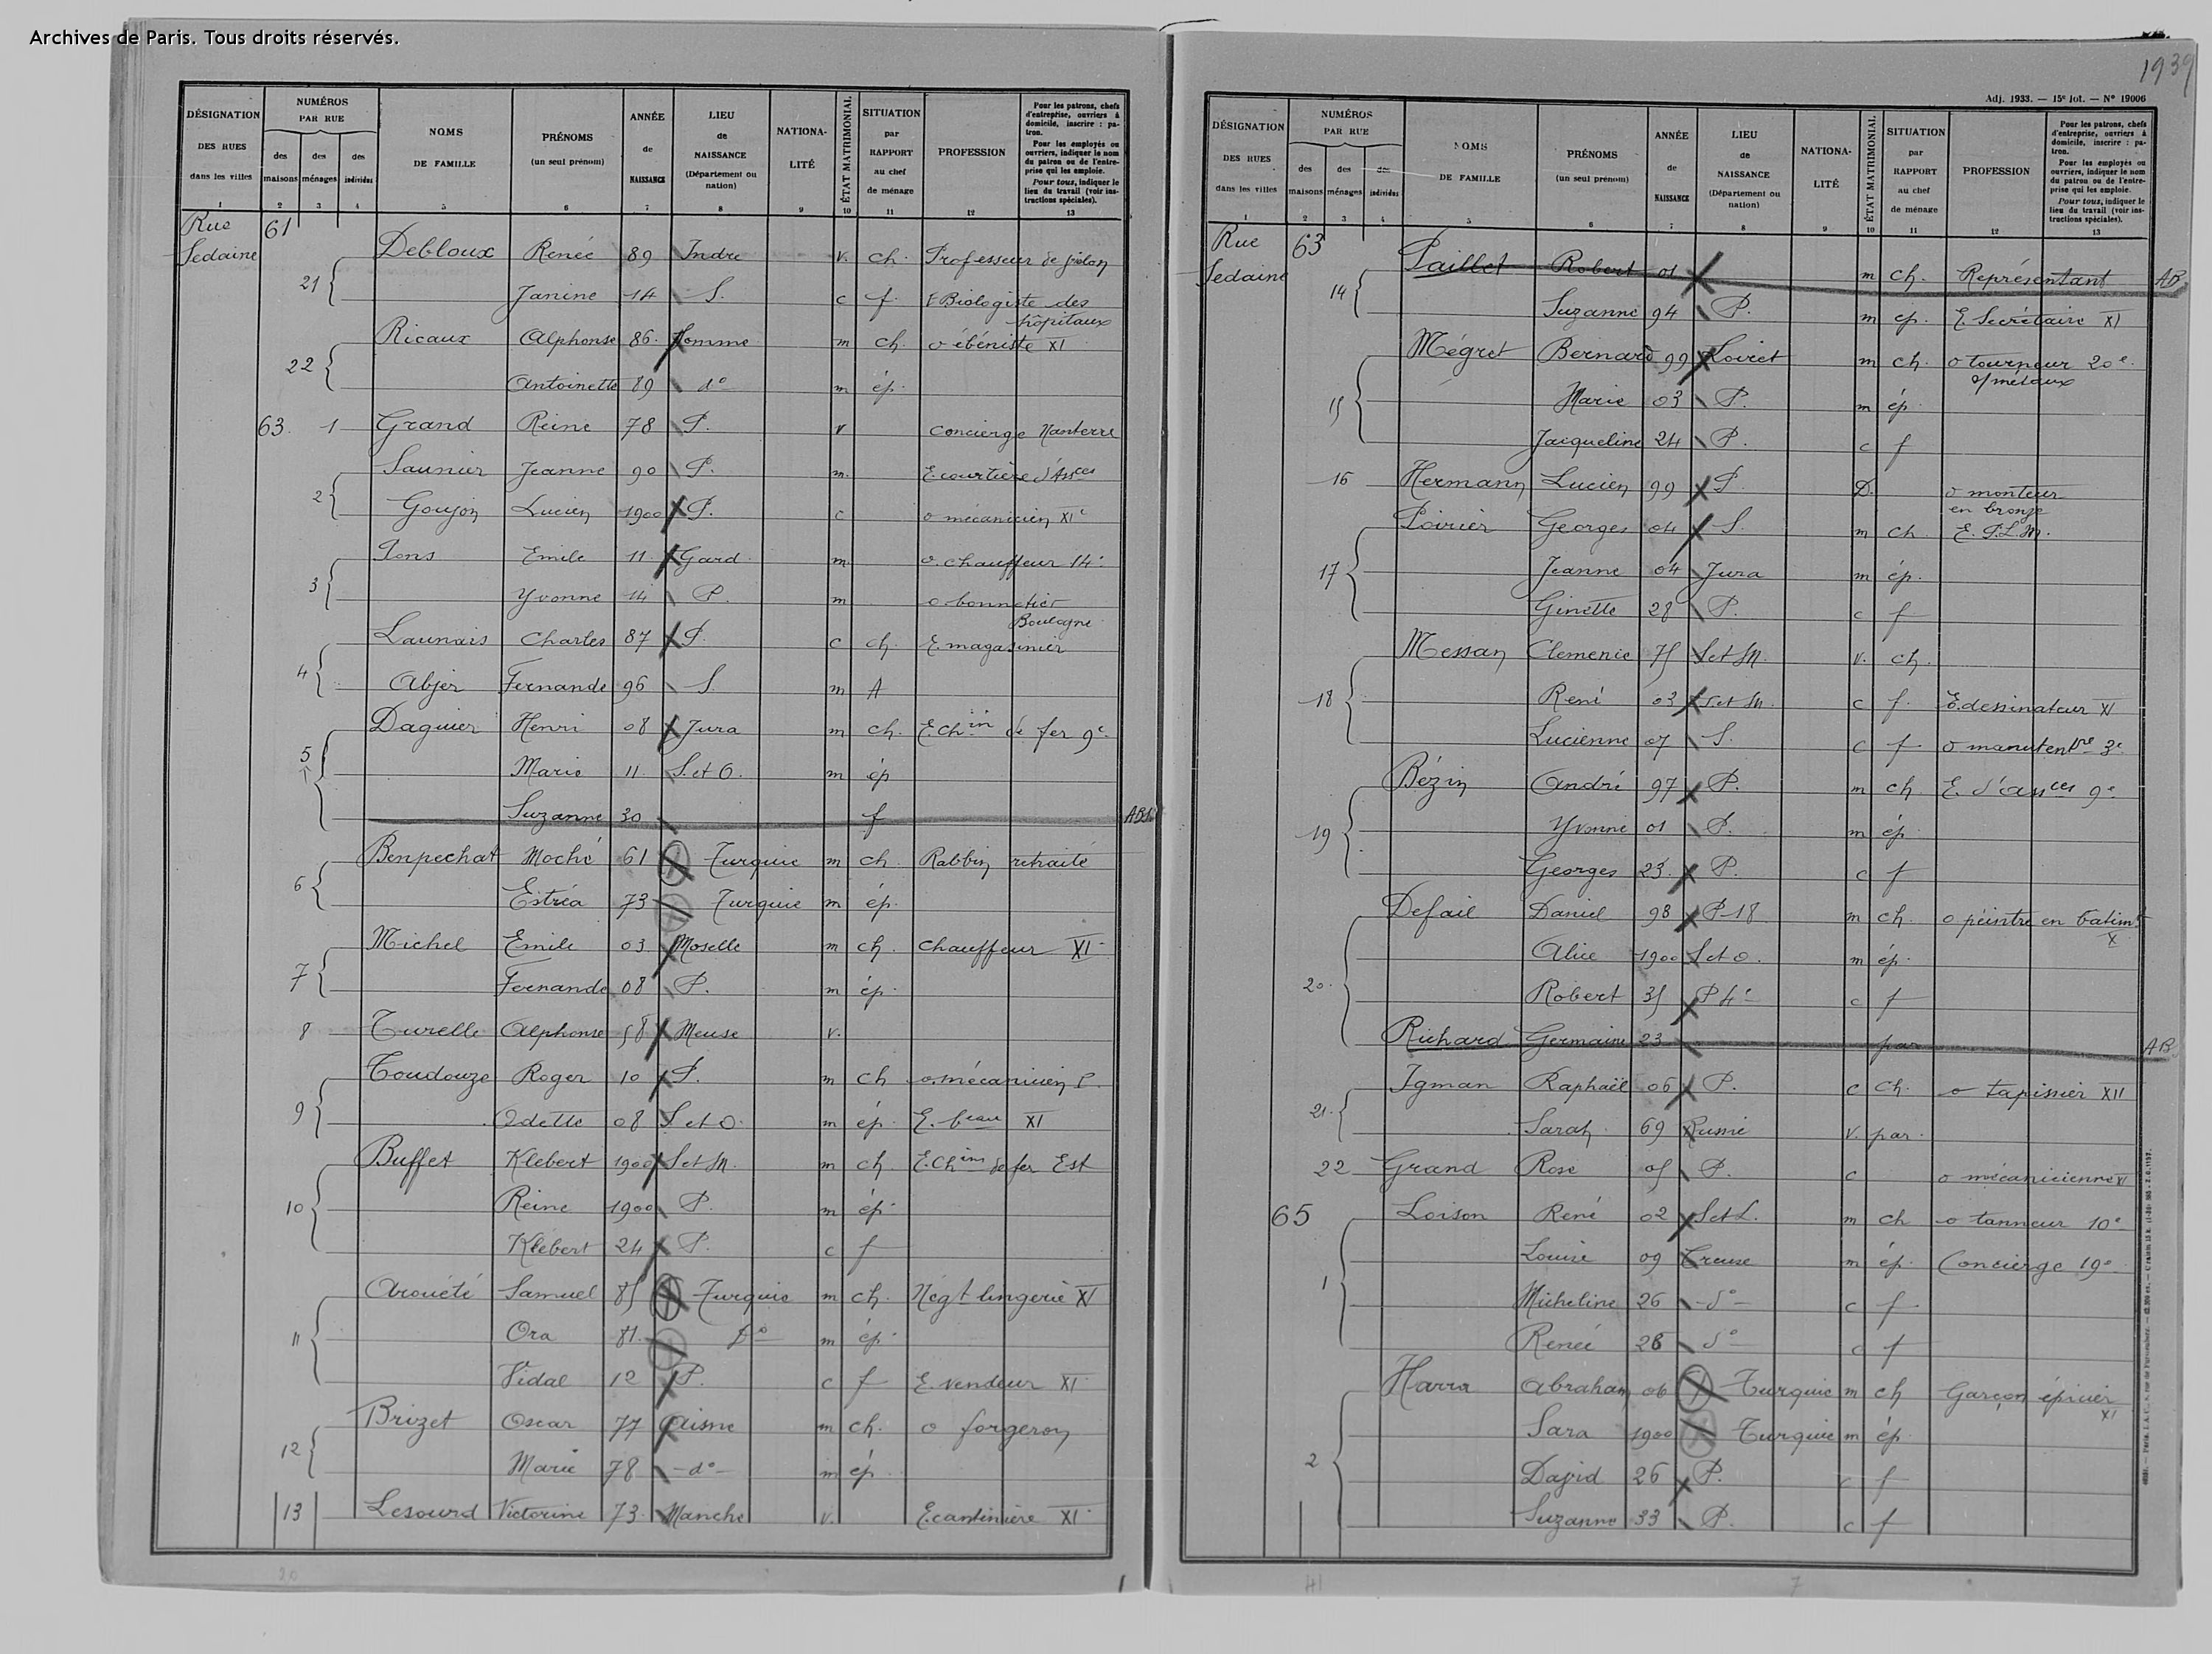 Archives de Paris. Tous droits réservés.
DÉSIGNATION DES RUES dans les villes 1
NUMÉROS PAR RUE des maisons 2 des ménages 3 des individus 4
NOMS DE FAMILLE 5
PRÉNOMS (un seul prénom) 6
ANNÉE de NAISSANCE 7
LIEU de NAISSANCE (Département ou nation) 8
NATIONALITÉ 9
ÉTAT MATRIMONIAL 10
SITUATION par RAPPORT au chef de ménage 11
PROFESSION 12
Pour les patrons, chefs d'entreprise, ouvriers à domicile, inscrire : patron.
Pour les employés ou ouvriers, indiquer le nom du patron ou de l'entreprise qui les emploie.
Pour tous, indiquer le lieu du travail (voir instructions spéciales). 13
Rue Sedaine 61
21 Debloux Renée 89 Indre v. ch. Professeur de
Janine 14 S. c f. Biologiste des hôpitaux
22 Ricaux Alphonse 86. Somme m ch. o ébéniste XI
Antoinette 89 do m ép.
63 1 Grand Reine 78 P. v concierge Nanterre
2 Saunier Jeanne 90 P. m. E. courtière d'Assces
Goujon Lucien 1900 P. c o mécanicien XIe
3 Pons Emile 11 Gard m. o. chauffeur 14e
Yvonne 14 P. m o bonnetier Boulogne
4 Launais Charles 87 P. c ch. E. magasinier
Abjer Fernande 96 S. m A
5 Daguier Henri 08 Jura m ch. E. chin de fer 9e
Marie 11 S. et O. m ép
Suzanne 30 f
6 Benpechat Moché 61 Turquie m ch. Rabbin retraité
Estréa 73 Turquie m ép.
7 Michel Emile 03 Moselle m ch. chauffeur XI
Fernande 08 P. m ép.
8 Turelle Alphonse 58 Meuse v.
9 Toudouze Roger 10 P. m ch o. mécanicien P.
Odette 08 S et O. m ép. E. beau XI
10 Buffet Klébert 1900 S et M. m ch. E. Chins de fer Est
Reine 1900 P. m ép.
Klébert 24 P. c f
11 Arouété Samuel 85 Turquie m ch. Négt lingerie XI
Ora 81 do m ép.
Vidal 12 P. c f E. vendeur XI
12 Brizet Oscar 77 Aisne m ch. o forgeron
Marie 78 do m ép.
13 Lesourd Victorine 73. Manche v. E. cantinière XI
1939
Adj. 1933. — 15e lot. — No 19006
DÉSIGNATION DES RUES dans les villes 1
NUMÉROS PAR RUE des maisons 2 des ménages 3 des individus 4
NOMS DE FAMILLE 5
PRÉNOMS (un seul prénom) 6
ANNÉE de NAISSANCE 7
LIEU de NAISSANCE (Département ou nation) 8
NATIONALITÉ 9
ÉTAT MATRIMONIAL 10
SITUATION par RAPPORT au chef de ménage 11
PROFESSION 12
Pour les patrons, chefs d'entreprise, ouvriers à domicile, inscrire : patron.
Pour les employés ou ouvriers, indiquer le nom du patron ou de l'entreprise qui les emploie.
Pour tous, indiquer le lieu du travail (voir instructions spéciales). 13
Rue Sedaine 63
14 Paillet Robert 01 m ch. Représentant AB
Suzanne 94 P. m ep. E. Secrétaire XI
15 Mégret Bernard 99 Loiret m ch. o tourneur 20e s/métaux
Marie 03 P. m ép
Jacqueline 24 P. c f
16 Hermann Lucien 99 P D. o monteur en bronze
17 Poirier Georges 04 S. m ch E. P.L.M.
Jeanne 04 Jura m ép.
Ginette 28 P. c f
18 Messan Clemence 75 S et M. v. ch.
René 03 S. et M. c f. E. dessinateur XI
Lucienne 07 S. c f o manutentre 3e
19 Bézin André 97 P. m ch. E. d'assces 9e
Yvonne 01 P. m ép
Georges 23. P. c f
20. Defail Daniel 98 P-18 m ch. o peintre en batimt X
Alice 1900 S et O. m ép.
Robert 35 P 4e c f
Richard Germaine 23 par AB
21. Igman Raphaël 06 P. c ch. o tapissier XII
Sarah 69 Russie v. par.
22 Grand Rose 05 P. c o mécanicienne XI
65 1 Loison René 02 S et L. m ch o tanneur 10e
Louise 09 Creuse m ép. Concierge 19e
Micheline 26 do c f
Renée 28 do c f
2 Harra Abraham 06 Turquie m ch Garçon épicier XI
Sara 1900 Turquie m ép.
David 26 P. c f
Suzanne 33 P. c f